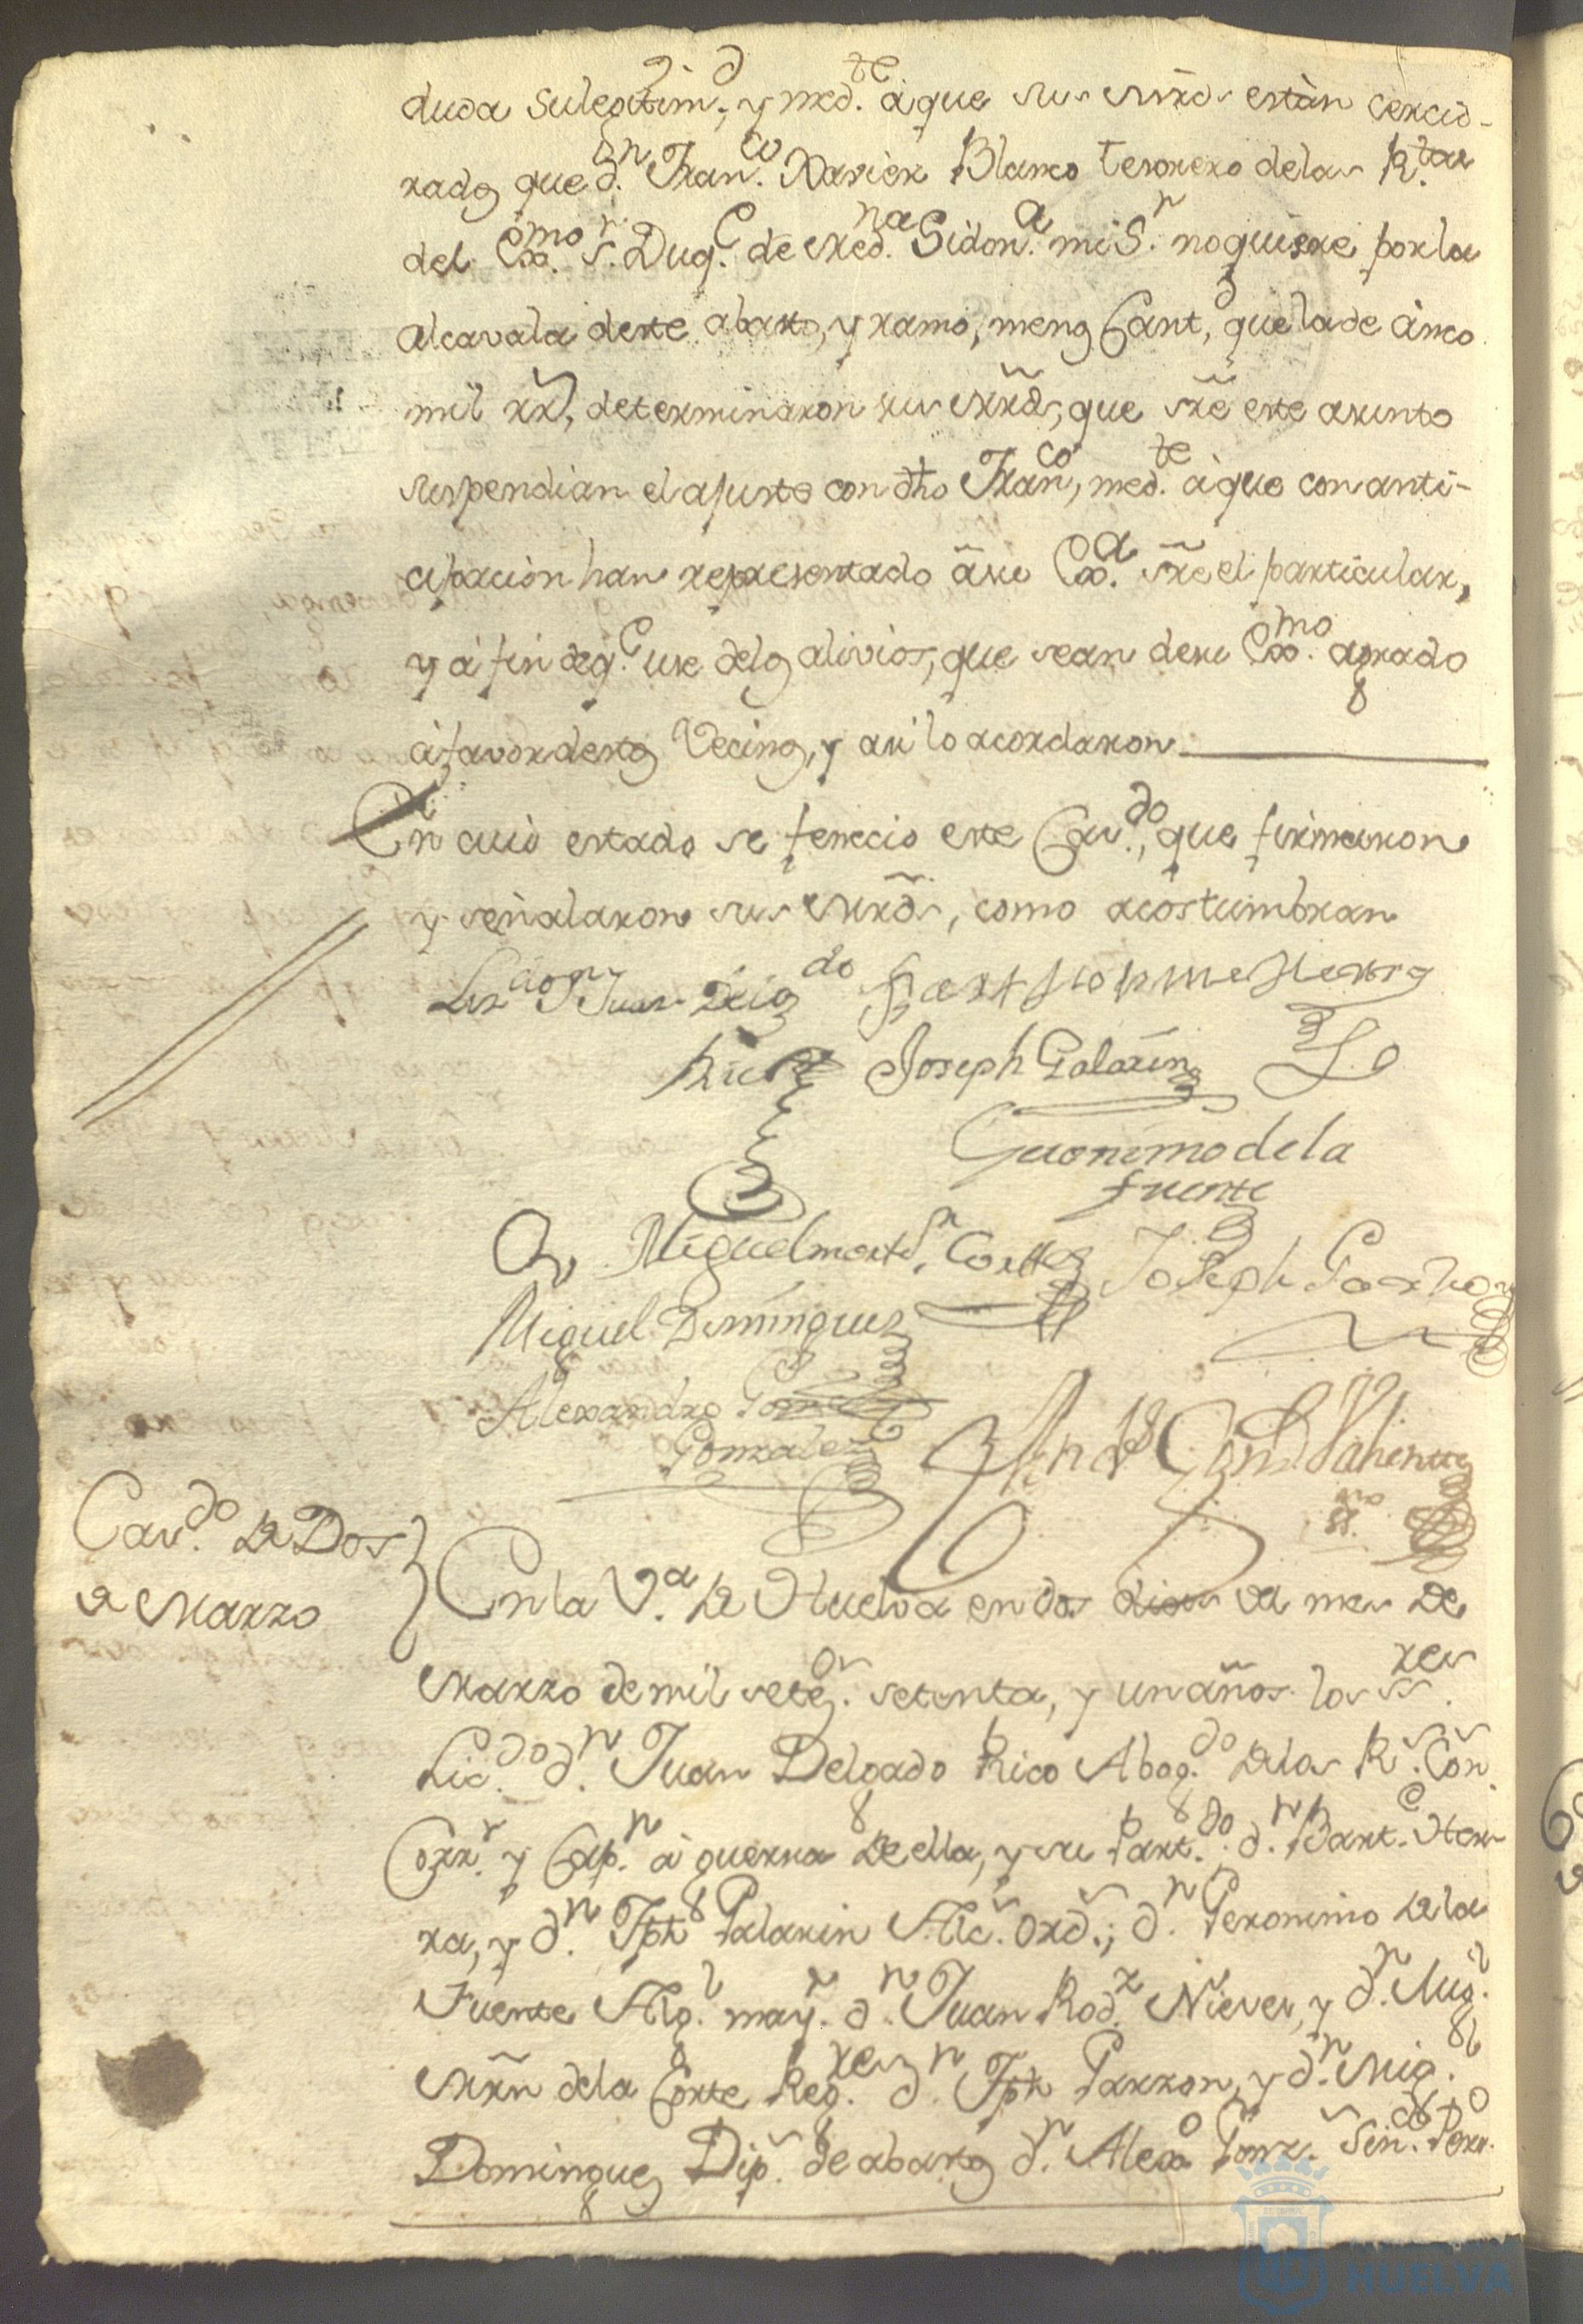 duda sulegitimd; y medte à que sus mrds estàn cercio-
rados que dn Franco Xavier Blanco tesorero delas Rtas
del Exmo sr Duqe de Medna Sidona mi Sr no quiere por la
alcavala deste abasto, y ramo, menos Cantd, que la de cinco
mil rr, determinaron sus mrds, que sre este asunto
suspendian el ajuste con dho Franco, medte à que con anti-
cipacion han representado à su Exa sre el particular,
y à fin de qe use delos alivios, que sean de su Exmo agrado
à favor destos Vecinos, y asi lo acordaron
En cuio estado se fenecio este Cavdo, que firmaron
y señalaron sus mrds, como acostumbran
Licdo Dn Juan Delgdo
Rico
Joseph Galarin
Geronimo dela
fuente
Miguel mart Cortes
Joseph Garzon
Miguel Dominguez
Alexandro Gomez
Gonzalez
Cavdo de Dos
de Marzo
En la Va de Huelva en dos dias del mes de
Marzo de mil seteos setenta, y un años los ssres
Licdo dn Juan Delgado Rico Abogdo delas Rs Cons
Corrr y Capn à guerra de ella, y su Partdo dn Barte Her
ra, y dn Jph Galarin Alcs ordrs; dn Geronimo dela
Fuente Algl mayr dn Juan Rodz Nieves, y dn Migl
Mrn dela Corte Regres dn Jph Garzon, y dn Migl
Dominguez Dips de abastos dn Alexo Gonz Sindo Pero
HUELVA